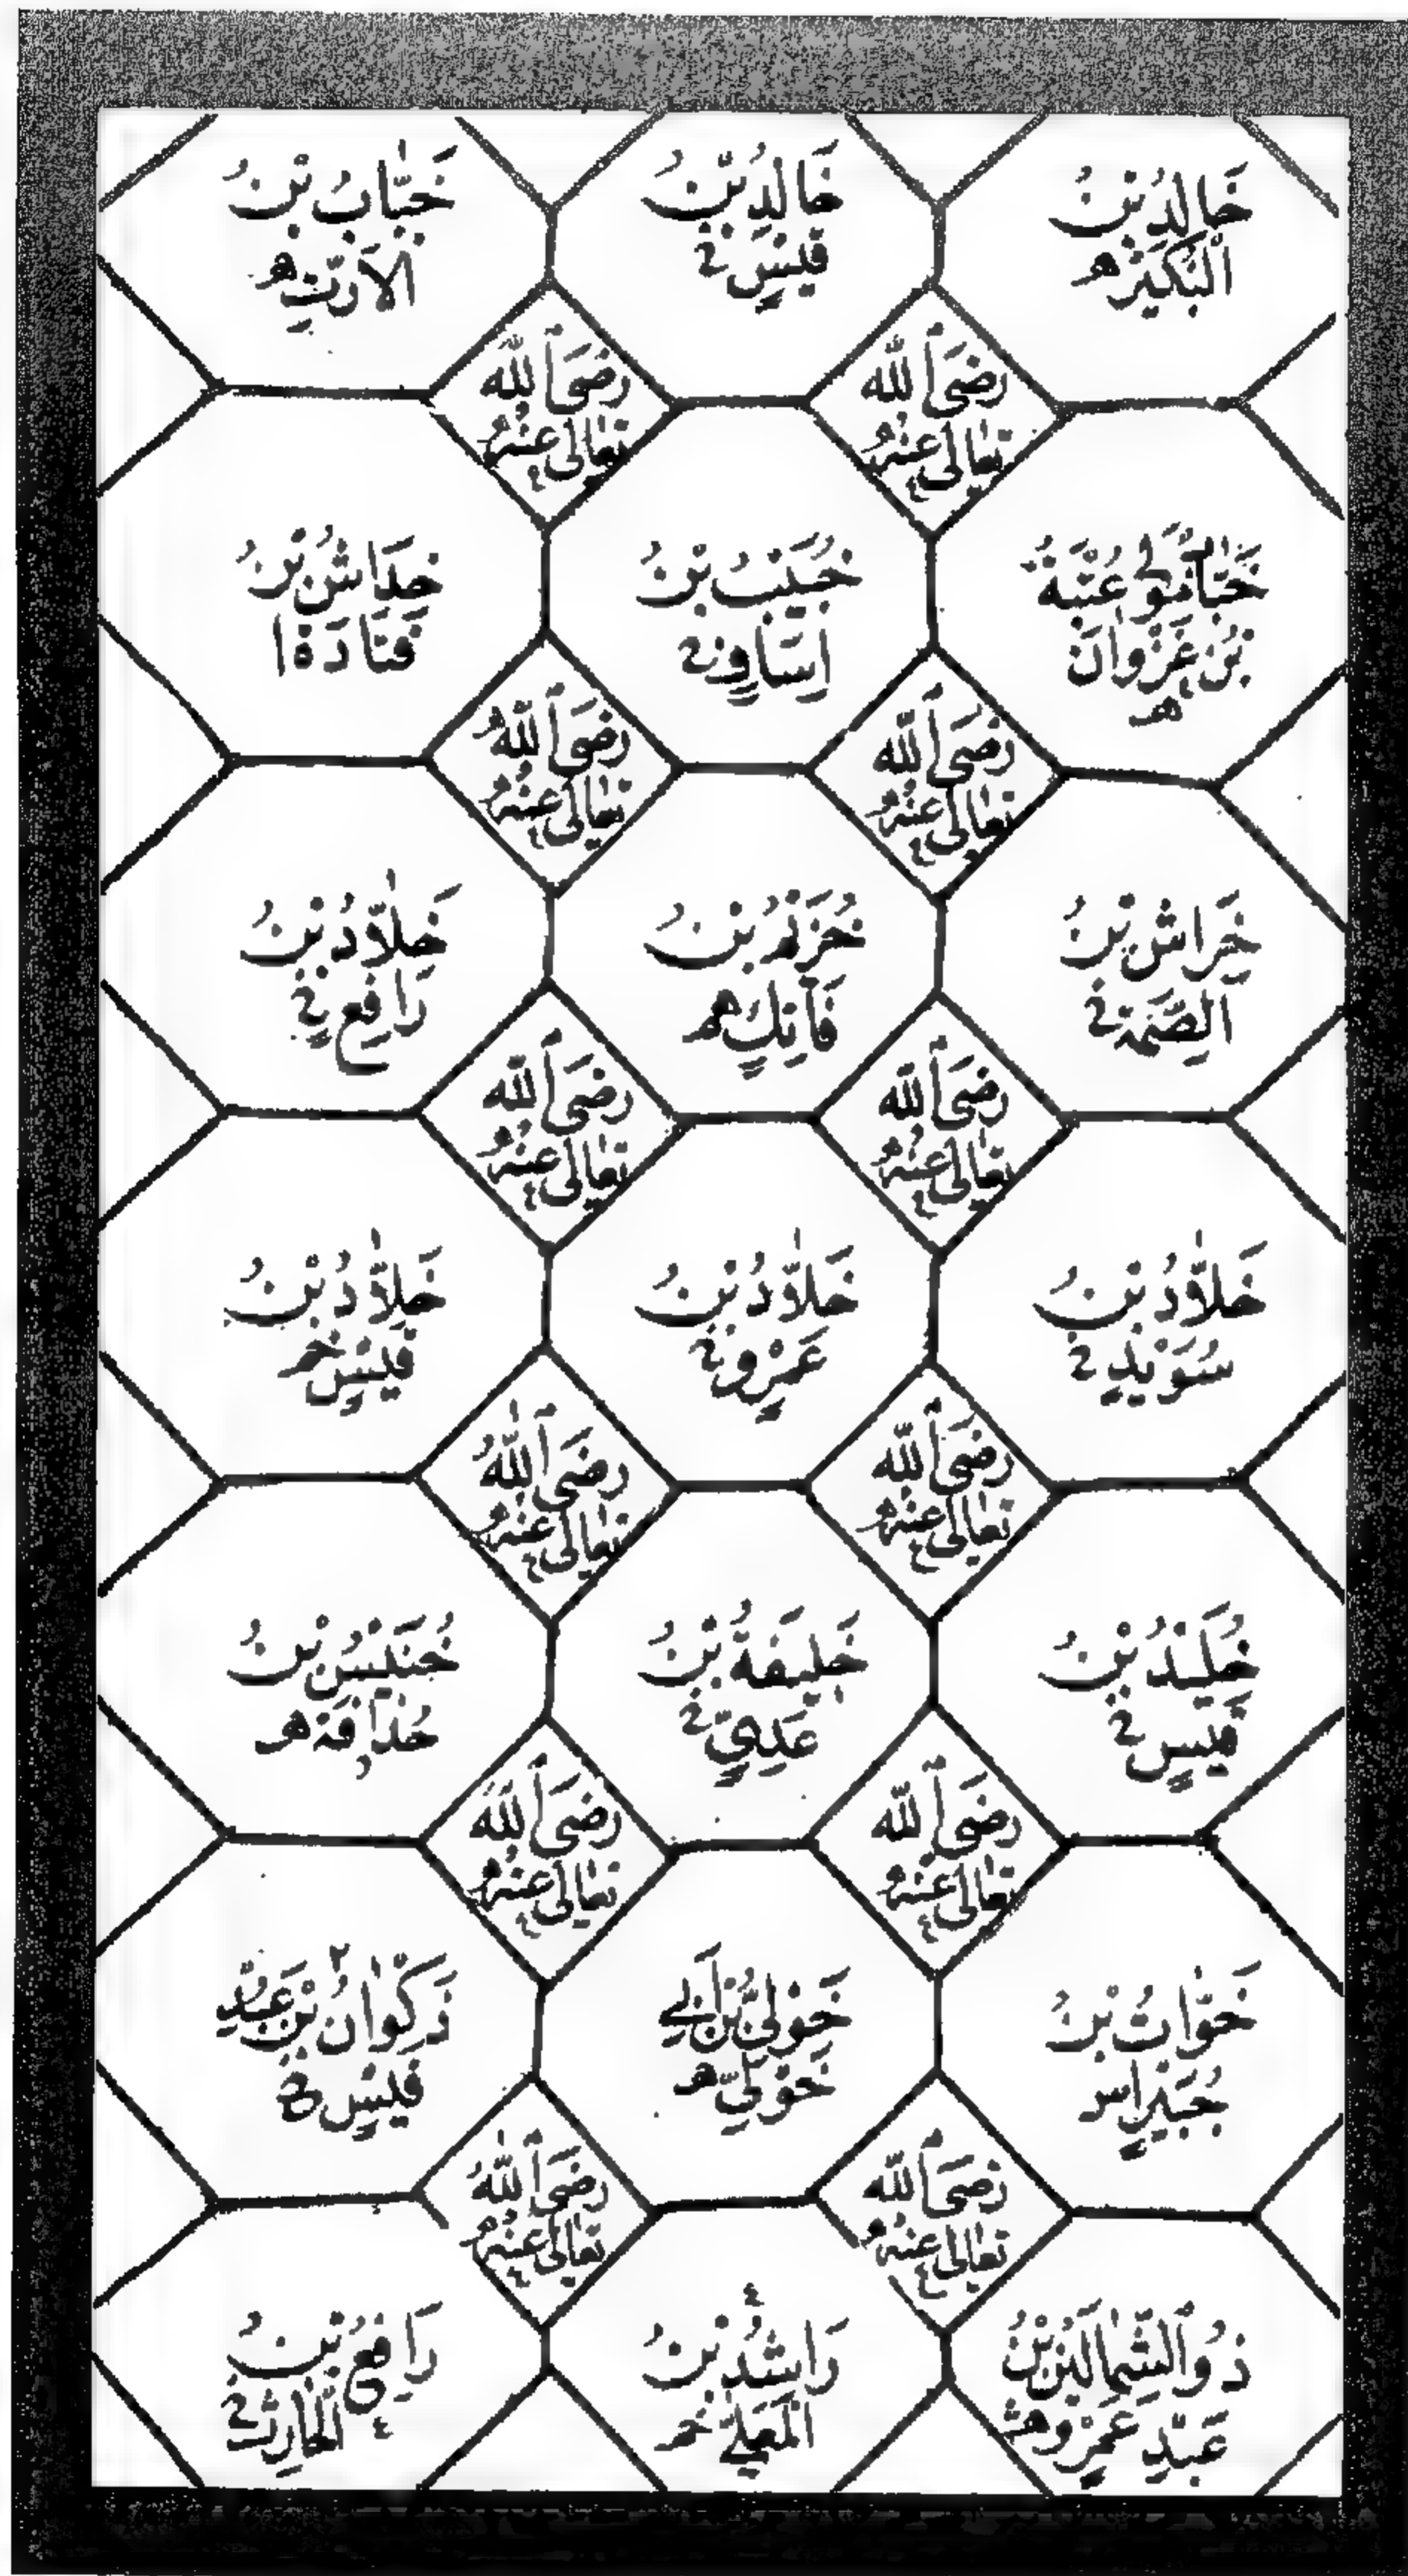 خَالِدُ بْنُ
الْبُكَيْرِ هـ
خَالِدُ بْنُ
قَيْسٍ خ
خَبَّابُ بْنُ
الْاَرَتِّ هـ
رَضِیَ اللّٰه
تَعَالٰی عَنْهُ
رَضِیَ اللّٰه
تَعَالٰی عَنْهُ
خَبَّابٌ مَوْلٰی عُتْبَةَ
بْنِ غَزْوَانَ
هـ
خُبَيْبُ بْنُ
اِسَافٍ خ
خِدَاشُ بْنُ
قَتَادَةَ ا
رَضِیَ اللّٰه
تَعَالٰی عَنْهُ
رَضِیَ اللّٰهُ
تَعَالٰی عَنْهُ
خِرَاشُ بْنُ
الصِّمَّةِ خ
خُرَيْمُ بْنُ
فَاتِكٍ هـ
خَلَّادُ بْنُ
رَافِعٍ خ
رَضِیَ اللّٰه
تَعَالٰی عَنْهُ
رَضِیَ اللّٰه
تَعَالٰی عَنْهُ
خَلَّادُ بْنُ
سُوَيْدٍ خ
خَلَّادُ بْنُ
عَمْرٍو خ
خَلَّادُ بْنُ
قَيْسٍ خ
رَضِیَ اللّٰه
تَعَالٰی عَنْهُ
رَضِیَ اللّٰهُ
تَعَالٰی عَنْهُ
خُلَيْدُ بْنُ
قَيْسٍ خ
خَلِيفَةُ بْنُ
عَدِیٍّ خ
خُنَيْسُ بْنُ
حُذَافَةَ هـ
رَضِیَ اللّٰه
تَعَالٰی عَنْهُ
رَضِیَ اللّٰه
تَعَالٰی عَنْهُ
خَوَّاتُ بْنُ
جُبَيْرٍ اس
خَوْلِیُّ بْنُ اَبِی
خَوْلِیٍّ هـ
ذَكْوَانُ بْنُ عَبْدِ
قَيْسٍ
رَضِیَ اللّٰه
تَعَالٰی عَنْهُ
رَضِیَ اللّٰهُ
تَعَالٰی عَنْهُ
ذُو الشِّمَالَيْنِ بْنُ
عَبْدِ عَمْرٍو هش
رَاشِدُ بْنُ
الْمُعَلّٰی خ
رَافِعُ بْنُ
الْحَارِثِ خ